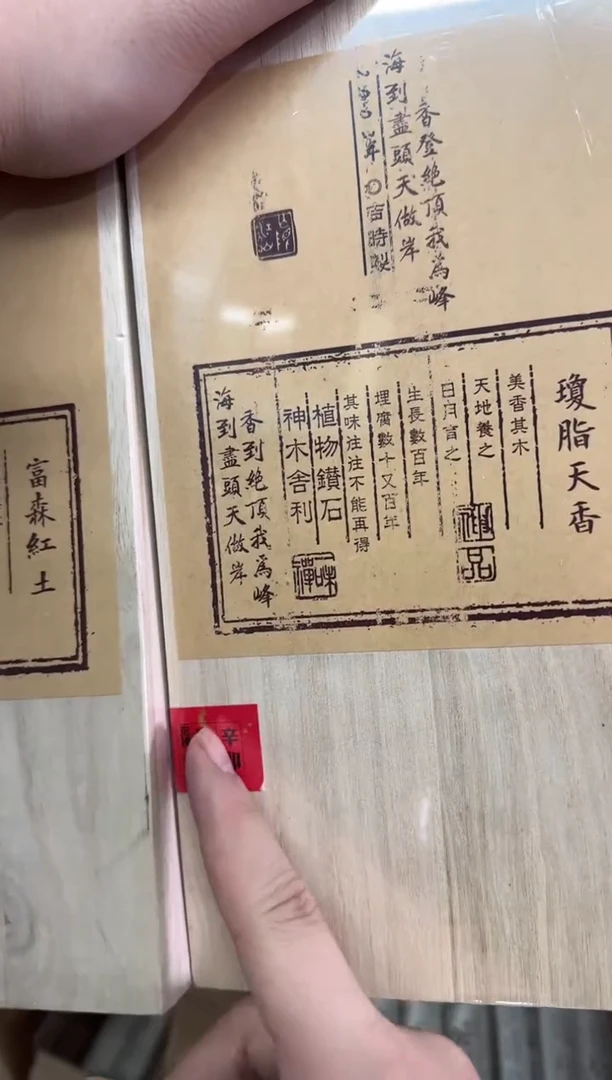 香登絶頂我爲峰
海到盡頭天做岸
瓊脂天香
美香其木
天地養之
生長數百年
埋腐數十又百年
其味往往不能再得
植物鑽石
神木舍利
香到絶頂我爲峰
海到盡頭天做岸
富森紅土
辛